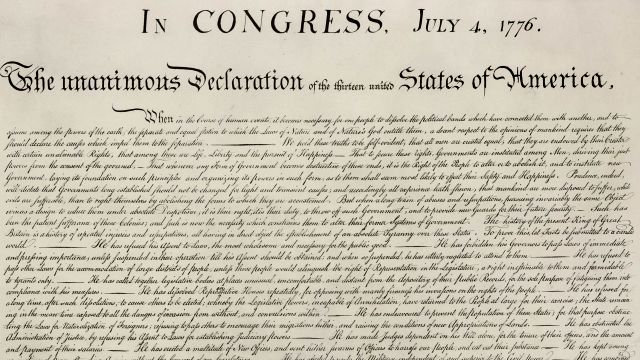 In CONGRESS, July 4, 1776.
The unanimous Declaration of the thirteen united States of America,
When in the Course of human events, it becomes necessary for one people to dissolve the political bands which have connected them with another, and to
assume among the powers of the earth, the separate and equal station to which the Laws of Nature and of Nature's God entitle them, a decent respect to the opinions of mankind requires that they
should declare the causes which impel them to the separation. We hold these truths to be self-evident, that all men are created equal, that they are endowed by their Creator
with certain unalienable Rights, that among these are Life, Liberty and the pursuit of Happiness. That to secure these rights, Governments are instituted among Men, deriving their just
powers from the consent of the governed, That whenever any Form of Government becomes destructive of these ends, it is the Right of the People to alter or to abolish it, and to institute new
Government, laying its foundation on such principles and organizing its powers in such form, as to them shall seem most likely to effect their Safety and Happiness. Prudence, indeed,
will dictate that Governments long established should not be changed for light and transient causes; and accordingly all experience hath shewn, that mankind are more disposed to suffer, while
evils are sufferable, than to right themselves by abolishing the forms to which they are accustomed. But when a long train of abuses and usurpations, pursuing invariably the same Object
evinces a design to reduce them under absolute Despotism, it is their right, it is their duty, to throw off such Government, and to provide new Guards for their future security. Such has
been the patient sufferance of these Colonies; and such is now the necessity which constrains them to alter their former Systems of Government. The history of the present King of Great
Britain is a history of repeated injuries and usurpations, all having in direct object the establishment of an absolute Tyranny over these States. To prove this, let Facts be submitted to a candid
world. He has refused his Assent to Laws, the most wholesome and necessary for the public good. He has forbidden his Governors to pass Laws of immediate
and pressing importance, unless suspended in their operation till his Assent should be obtained; and when so suspended, he has utterly neglected to attend to them. He has refused to
pass other Laws for the accommodation of large districts of people, unless those people would relinquish the right of Representation in the Legislature, a right inestimable to them and formidable
to tyrants only. He has called together legislative bodies at places unusual, uncomfortable, and distant from the depository of their Public Records, for the sole purpose of fatiguing them into
compliance with his measures. He has dissolved Representative Houses repeatedly, for opposing with manly firmness his invasions on the rights of the people. He has refused for
a long time, after such dissolutions, to cause others to be elected; whereby the Legislative powers, incapable of Annihilation, have returned to the People at large for their exercise; the State remain-
ing in the mean time exposed to all the dangers of invasion from without, and convulsions within. He has endeavoured to prevent the population of these States; for that purpose obstruc-
ting the Laws for Naturalization of Foreigners; refusing to pass others to encourage their migrations hither, and raising the conditions of new Appropriations of Lands. He has obstructed the
Administration of Justice, by refusing his Assent to Laws for establishing Judiciary powers. He has made Judges dependent on his Will alone, for the tenure of their offices, and the amount
and payment of their salaries. He has erected a multitude of New Offices, and sent hither swarms of Officers to harrass our people, and eat out their substance. He has kept among